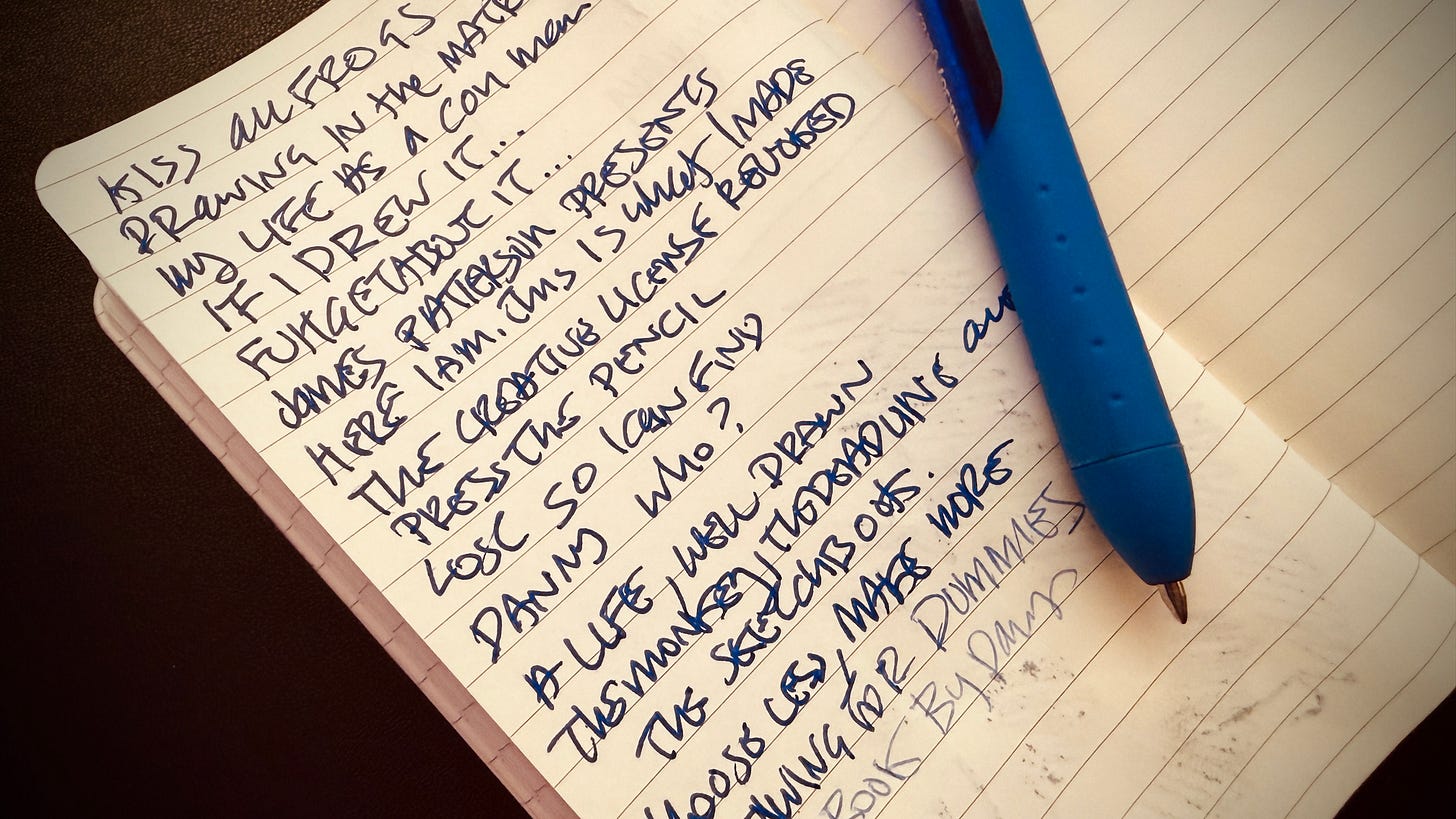 KISS all FROGS
DRAWING IN the MATR
My LIFE AS A CON man
IF I DREW IT...
FUHGETABOUT IT...
JAMES PATTERSON PRESENTS
HERE I AM. This IS what I MADE
THE CREATIVE LICENSE REVOKED
PRESS THE PENCIL
LOSE SO I CAN FIND
DANNY Who?
A LIFE, WELL DRAWN
THE MONKEY, THE DEADLINE and
THE SKETCHBOOKS.
HOOSE LESS, MAKE MORE
AWING FOR DUMMIES
BOOK By Danny